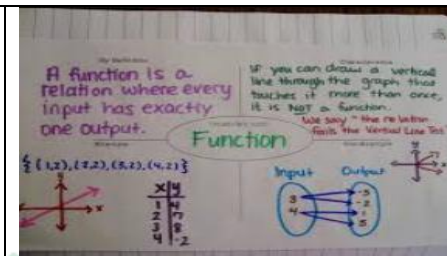 My Definition
A function is a
relation where every
input has exactly
one output.
Characteristics
IF you can draw a vertical
line through the graph that
touches it more than once,
it is NOT a function.
We say "the relation
fails the Vertical Line Test
Function
{(1,2), (2,2), (3,2), (4,2)}
y
x
x y
1 4
2 7
3 8
4 -2
Input Output
3
4
-2
1
5
y